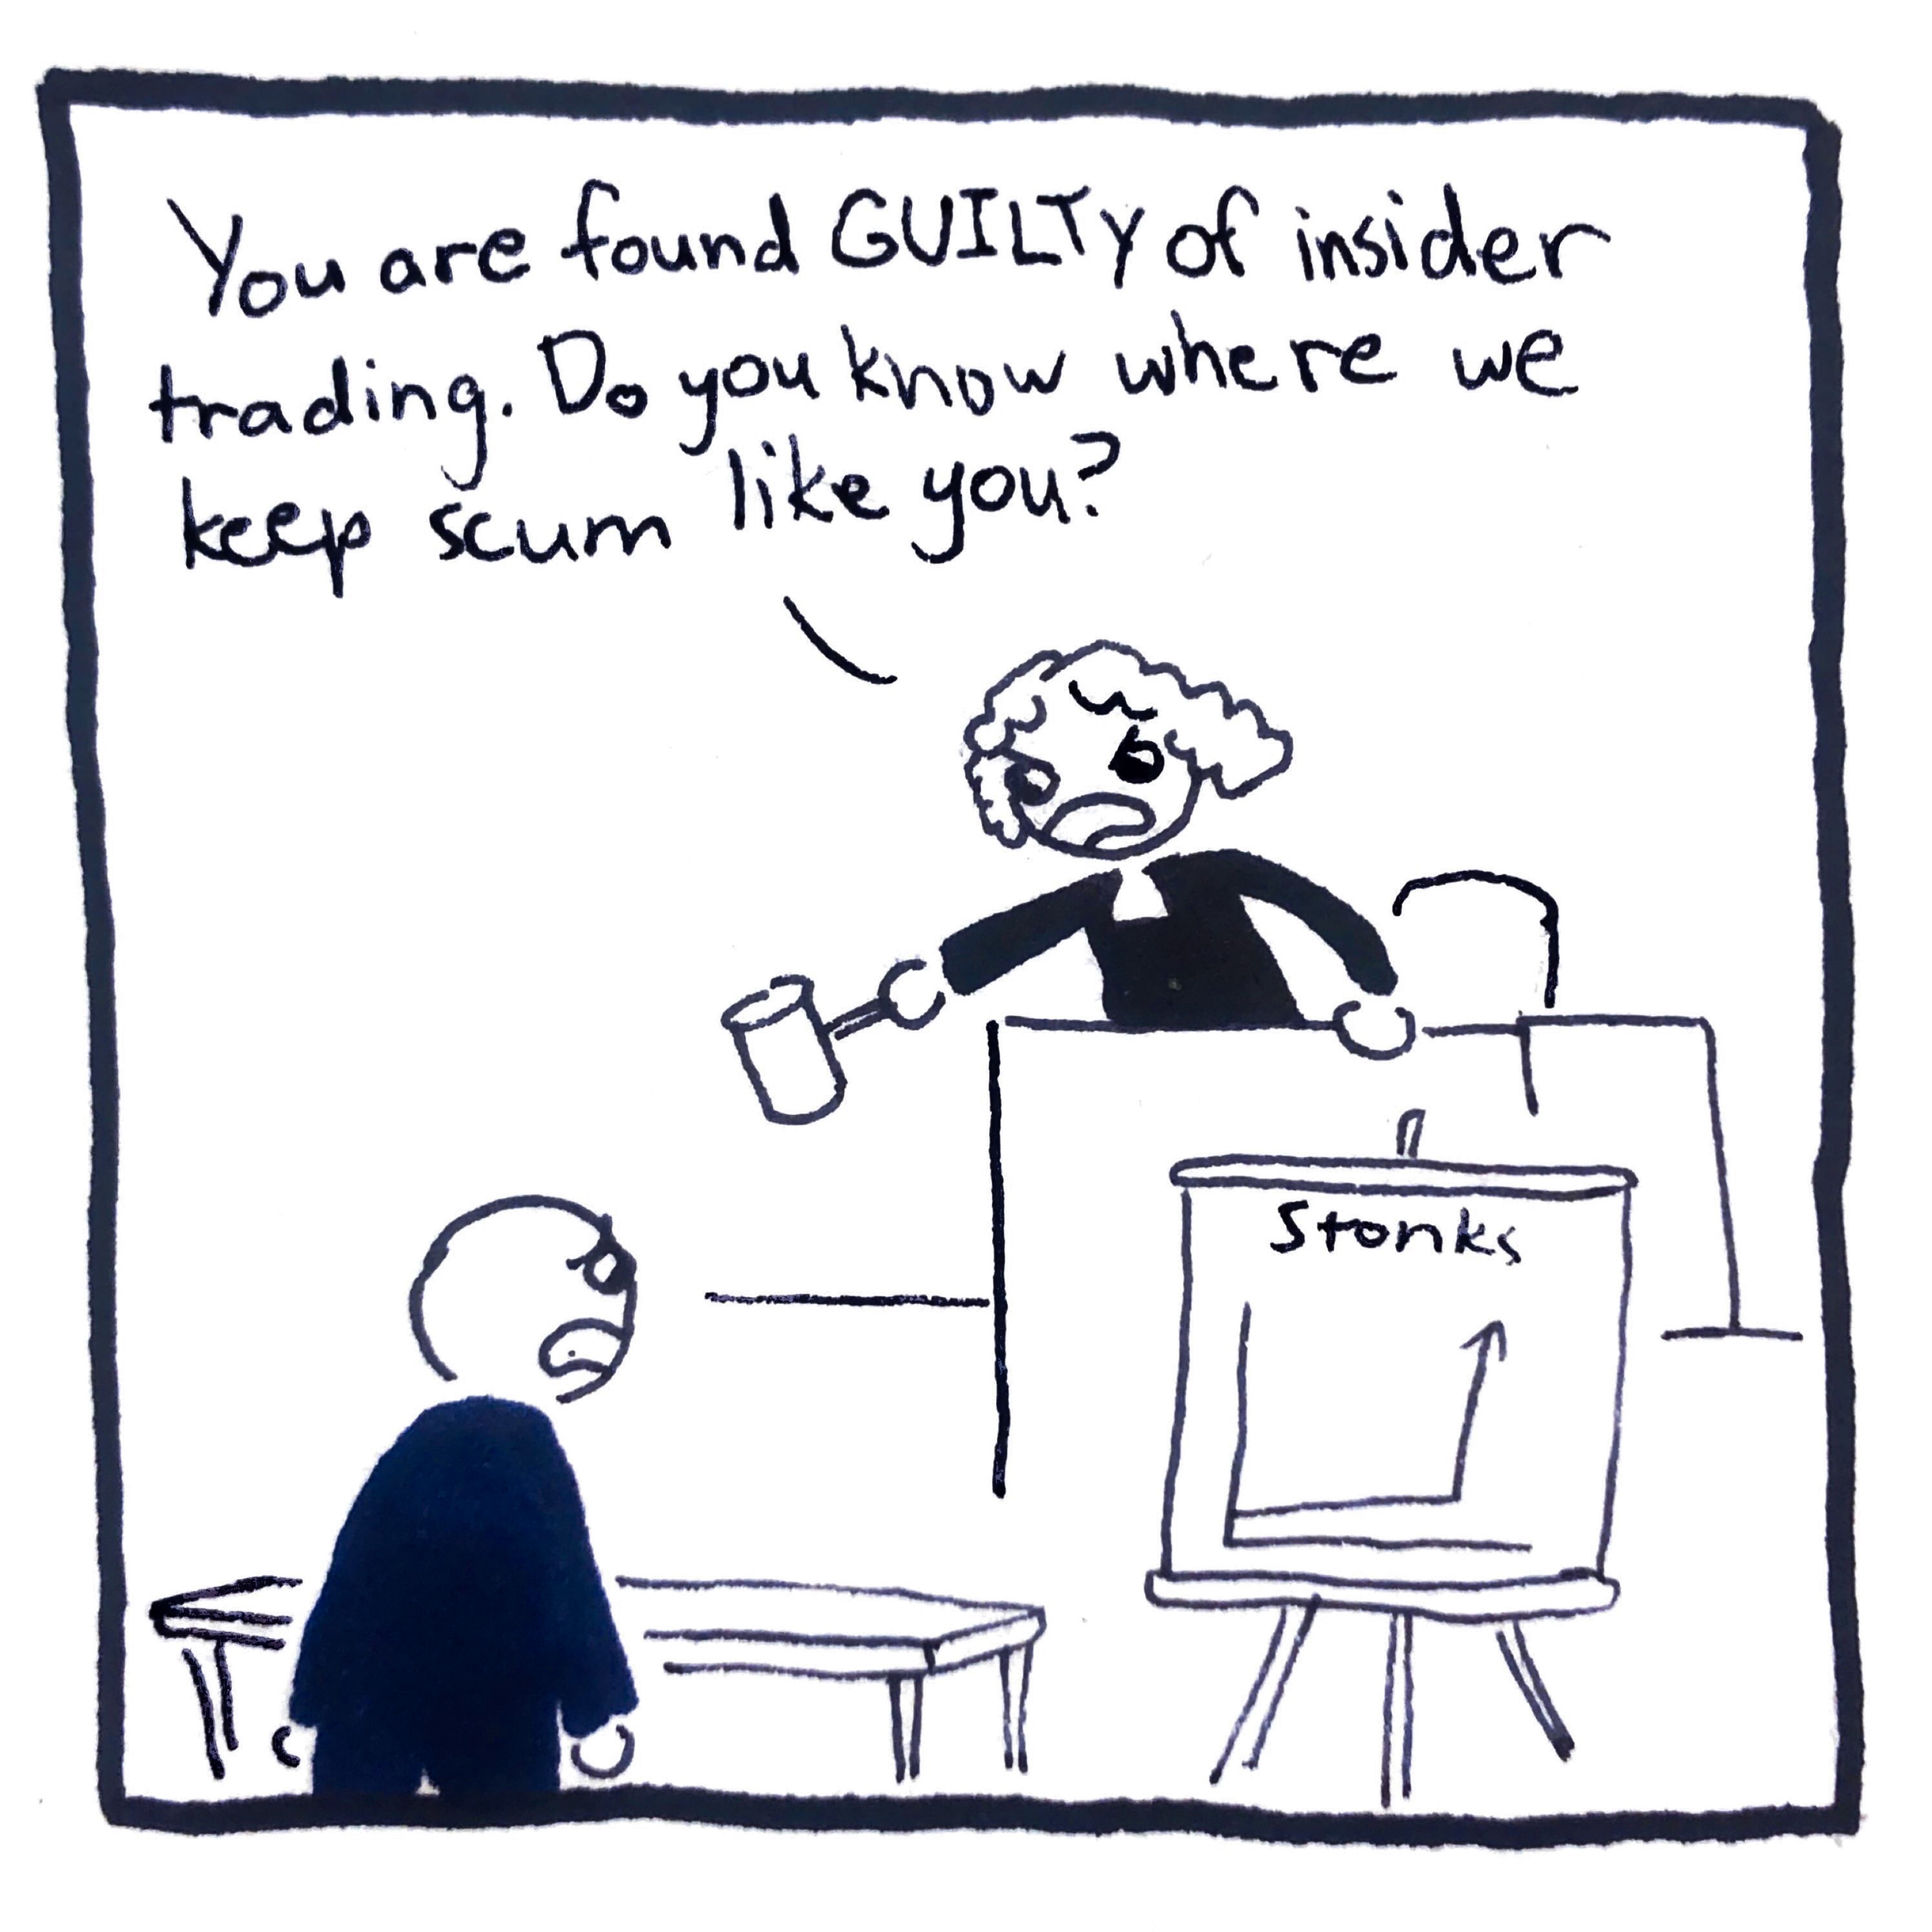 You are found GUILTY of insider
trading. Do you know where we
keep scum like you?
Stonks